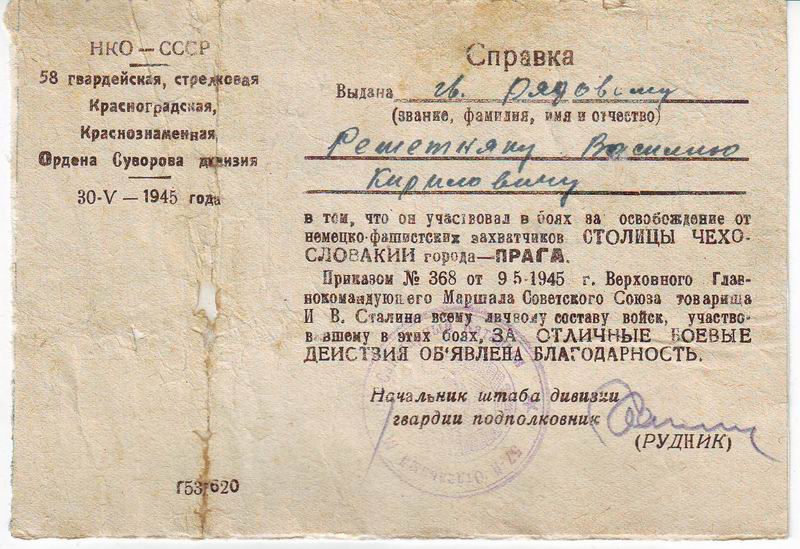 НКО — СССР
58 гвардейская, стрелковая
Красноградская,
Краснознаменная
Ордена Суворова дивизия
30-V — 1945 года
Г53620
Справка
Выдана гв. рядовому
(звание, фамилия, имя и отчество)
Решетняку Василию
Кириловичу
в том, что он участвовал в боях за освобождение от
немецко-фашистских захватчиков СТОЛИЦЫ ЧЕХО-
СЛОВАКИИ города—ПРАГА.
Приказом № 368 от 9 5-1945 г. Верховного Глав-
нокомандующего Маршала Советского Союза товарища
И В. Сталина всему личному составу войск, участво-
вавшему в этих боях, ЗА ОТЛИЧНЫЕ БОЕВЫЕ
ДЕИСТВИЯ ОБ'ЯВЛЕНА БЛАГОДАРНОСТЬ.
Начальник штаба дивизии
гвардии подполковник
(РУДНИК)